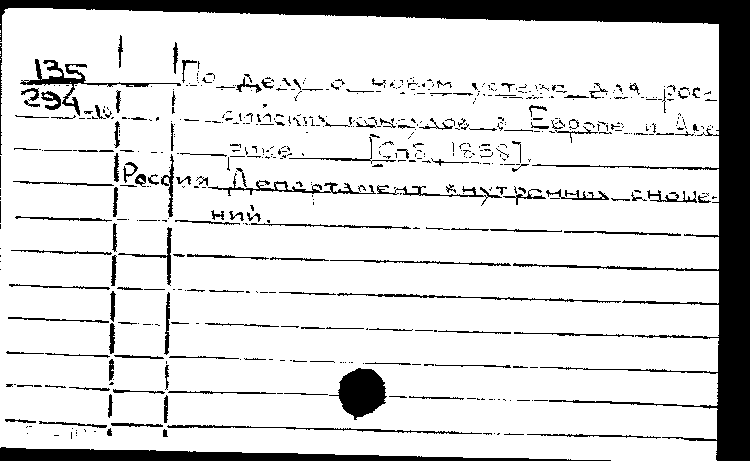 135
По делу о новом уставе для рос-
294-10
сийских консулов в Европе и Аме-
рике. [Спб, 1858].
Россия Департамент внутренних сноше-
ний.